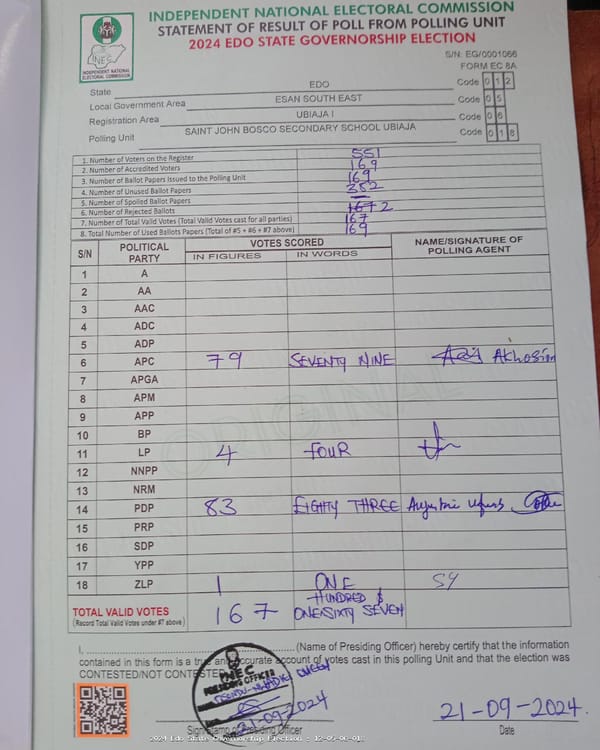 INDEPENDENT NATIONAL ELECTORAL COMMISSION
STATEMENT OF RESULT OF POLL FROM POLLING UNIT
2024 EDO STATE GOVERNORSHIP ELECTION
INEC
INDEPENDENT NATIONAL ELECTORAL COMMISSION
S/N: EG/0001066
FORM EC 8A
State EDO Code 0 1 2
Local Government Area ESAN SOUTH EAST Code 0 5
Registration Area UBIAJA I Code 0 6
Polling Unit SAINT JOHN BOSCO SECONDARY SCHOOL UBIAJA Code 0 1 8
1. Number of Voters on the Register 551
2. Number of Accredited Voters 169
3. Number of Ballot Papers Issued to the Polling Unit 169
4. Number of Unused Ballot Papers 382
5. Number of Spoiled Ballot Papers —
6. Number of Rejected Ballots 2
7. Number of Total Valid Votes (Total Valid Votes cast for all parties) 167
8. Total Number of Used Ballots Papers (Total of #5 + #6 + #7 above) 169
S/N POLITICAL PARTY VOTES SCORED NAME/SIGNATURE OF POLLING AGENT
IN FIGURES IN WORDS
1 A
2 AA
3 AAC
4 ADC
5 ADP
6 APC 79 SEVENTY NINE
7 APGA
8 APM
9 APP
10 BP
11 LP 4 FOUR
12 NNPP
13 NRM
14 PDP 83 EIGHTY THREE
15 PRP
16 SDP
17 YPP
18 ZLP 1 ONE
TOTAL VALID VOTES 167 HUNDRED & ONE SIXTY SEVEN
(Record Total Valid Votes under #7 above)
ORIGINAL
I, (Name of Presiding Officer) hereby certify that the information
contained in this form is a true and accurate account of votes cast in this polling Unit and that the election was
CONTESTED/NOT CONTESTED
INEC
PRESIDING OFFICER
21-09-2024
21-09-2024.
Date
2024 Edo State Governorship Election - 12-05-06-018